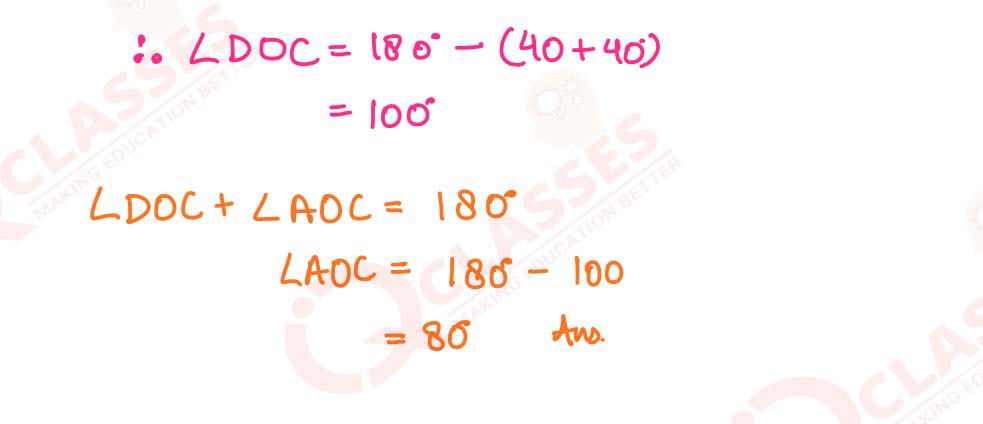 ∴ ∠DOC = 180° - (40 + 40°)
= 100°
∠DOC + ∠AOC = 180°
∠AOC = 180° - 100
= 80° Ans.
CLASSES
MAKING EDUCATION BETTER
CLASSES
MAKING EDUCATION BETTER
CLASSES